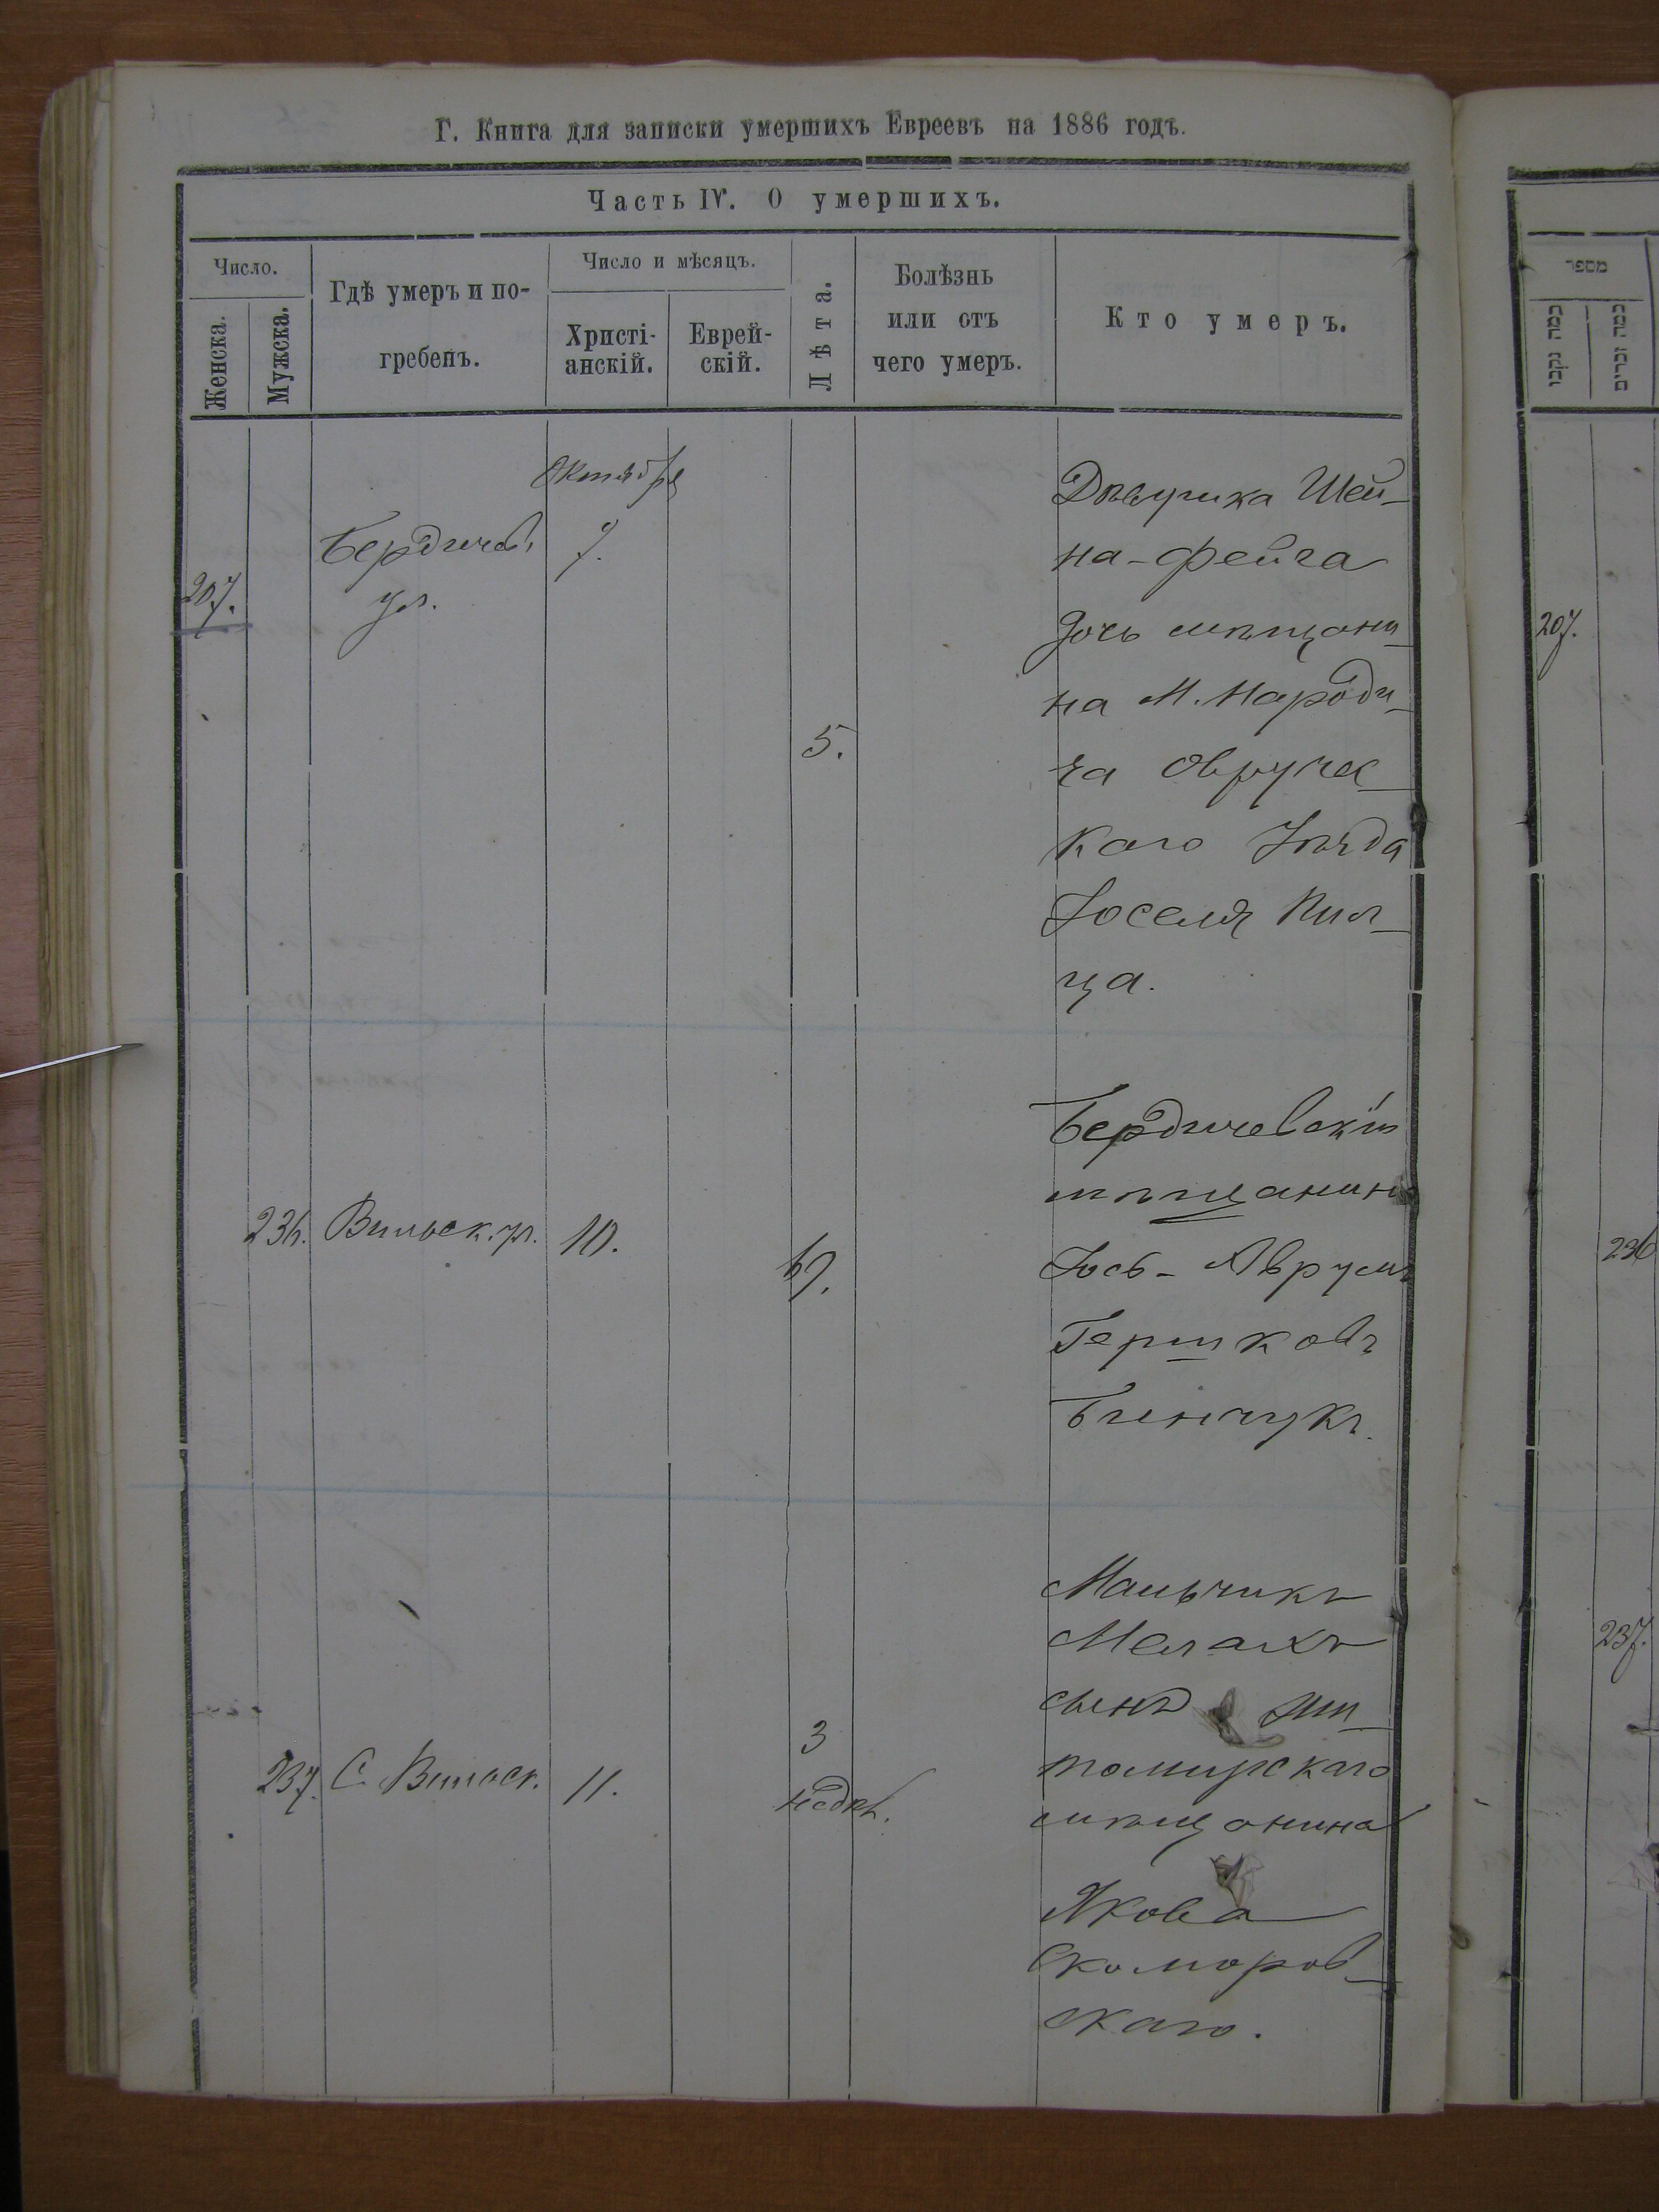 Г. Книга для записки умершихъ Евреевъ на 1886 годъ.
Часть IV. О умершихъ.
Число.
Женска.
Мужска.
Гдѣ умеръ и по-
гребенъ.
Число и мѣсяцъ.
Христі-
анскій.
Еврей-
скій.
Лѣта.
Болѣзнь
или отъ
чего умеръ.
Кто умеръ.
Октября
207.
Бердичев.
ул.
7.
5.
Дѣвушка Шей-
на-Фейга
дочь мѣщани-
на М. Народи-
ча Овручс-
каго Уѣзда
Іоселя Пил-
ца.
236.
Вильск. ул.
10.
67.
Бердичевскій
мѣщанинъ
Іось-Аврумъ
Гершковъ
Бенчукъ.
237.
С. Вильск.
11.
3
недѣл.
Мальчикъ
Мелахъ
сынъ Жи-
томирскаго
мѣщанина
Якова
Скоморов-
скаго.
מספר
207.
236
237.